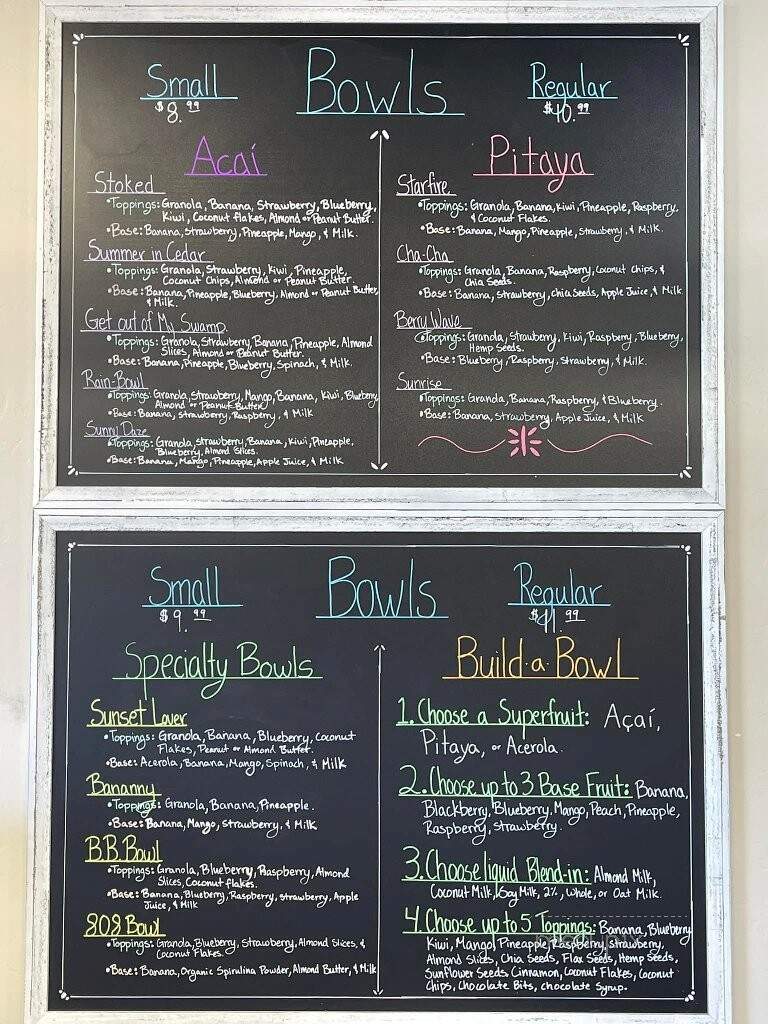 Small Bowls Regular
$8.99 $10.99
Acaí
Stoked
•Toppings: Granola, Banana, Strawberry, Blueberry,
Kiwi, Coconut flakes, Almond or Peanut Butter.
•Base: Banana, Strawberry, Pineapple, Mango, & Milk.
Summer in Cedar
•Toppings: Granola, Strawberry, Kiwi, Pineapple,
Coconut Chips, Almond or Peanut Butter.
•Base: Banana, Pineapple, Blueberry, Almond or Peanut Butter,
& Milk.
Get out of My Swamp
•Toppings: Granola, Strawberry, Banana, Pineapple, Almond
Slices, Almond or Peanut Butter.
•Base: Banana, Pineapple, Blueberry, Spinach, & Milk.
Rain-Bowl
•Toppings: Granola, Strawberry, Mango, Banana, Kiwi, Blueberry,
Almond or Peanut Butter
•Base: Banana, Strawberry, Raspberry, & Milk
Sunny Daze
•Toppings: Granola, Strawberry, Banana, Kiwi, Pineapple,
Blueberry, Almond Slices.
•Base: Banana, Mango, Pineapple, Apple Juice, & Milk
Pitaya
Starfire
•Toppings: Granola, Banana, Kiwi, Pineapple, Raspberry,
& Coconut Flakes.
•Base: Banana, Mango, Pineapple, Strawberry, & Milk.
Cha-Cha
•Toppings: Granola, Banana, Raspberry, Coconut Chips, &
Chia Seeds.
•Base: Banana, Strawberry, Chia Seeds, Apple Juice, & Milk
Berry Wave
•Toppings: Granola, Strawberry, Kiwi, Raspberry, Blueberry,
Hemp Seeds.
•Base: Blueberry, Raspberry, Strawberry, & Milk.
Sunrise
•Toppings: Granola, Banana, Raspberry, & Blueberry.
•Base: Banana, Strawberry, Apple Juice, & Milk
Small Bowls Regular
$9.99 $11.99
Specialty Bowls
Sunset Lover
•Toppings: Granola, Banana, Blueberry, Coconut
Flakes, Peanut or Almond Butter.
•Base: Acerola, Banana, Mango, Spinach, & Milk
Bananny
•Toppings: Granola, Banana, Pineapple.
•Base: Banana, Mango, Strawberry, & Milk
B.B. Bowl
•Toppings: Granola, Blueberry, Raspberry, Almond
Slices, Coconut flakes.
•Base: Banana, Blueberry, Raspberry, Strawberry, Apple
Juice, & Milk
808 Bowl
•Toppings: Granola, Blueberry, Strawberry, Almond Slices, &
Coconut Flakes.
•Base: Banana, Organic Spirulina Powder, Almond Butter, & Milk
Build-a-Bowl
1. Choose a Superfruit: Açaí,
Pitaya, or Acerola.
2. Choose up to 3 Base Fruit: Banana,
Blackberry, Blueberry, Mango, Peach, Pineapple,
Raspberry, Strawberry.
3. Choose liquid Blend-in: Almond Milk,
Coconut Milk, Soy Milk, 2%, Whole, or Oat Milk.
4. Choose up to 5 Toppings: Banana, Blueberry
Kiwi, Mango, Pineapple, Raspberry, Strawberry,
Almond Slices, Chia Seeds, Flax Seeds, Hemp Seeds,
Sunflower Seeds, Cinnamon, Coconut Flakes, Coconut
Chips, Chocolate Bits, Chocolate Syrup.